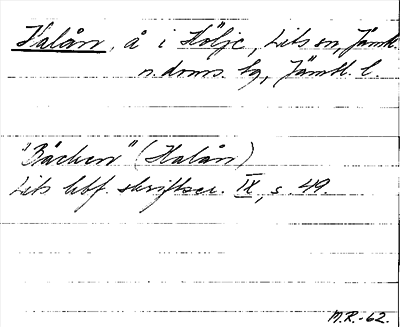 Halån, å i Hölje, Lits sn, Jämtl.
n. doms. hg, Jämtl. l.
"Bäcken" (Halån)
Lits hbf. skriftser. IX, s. 49.
M.R.-62.